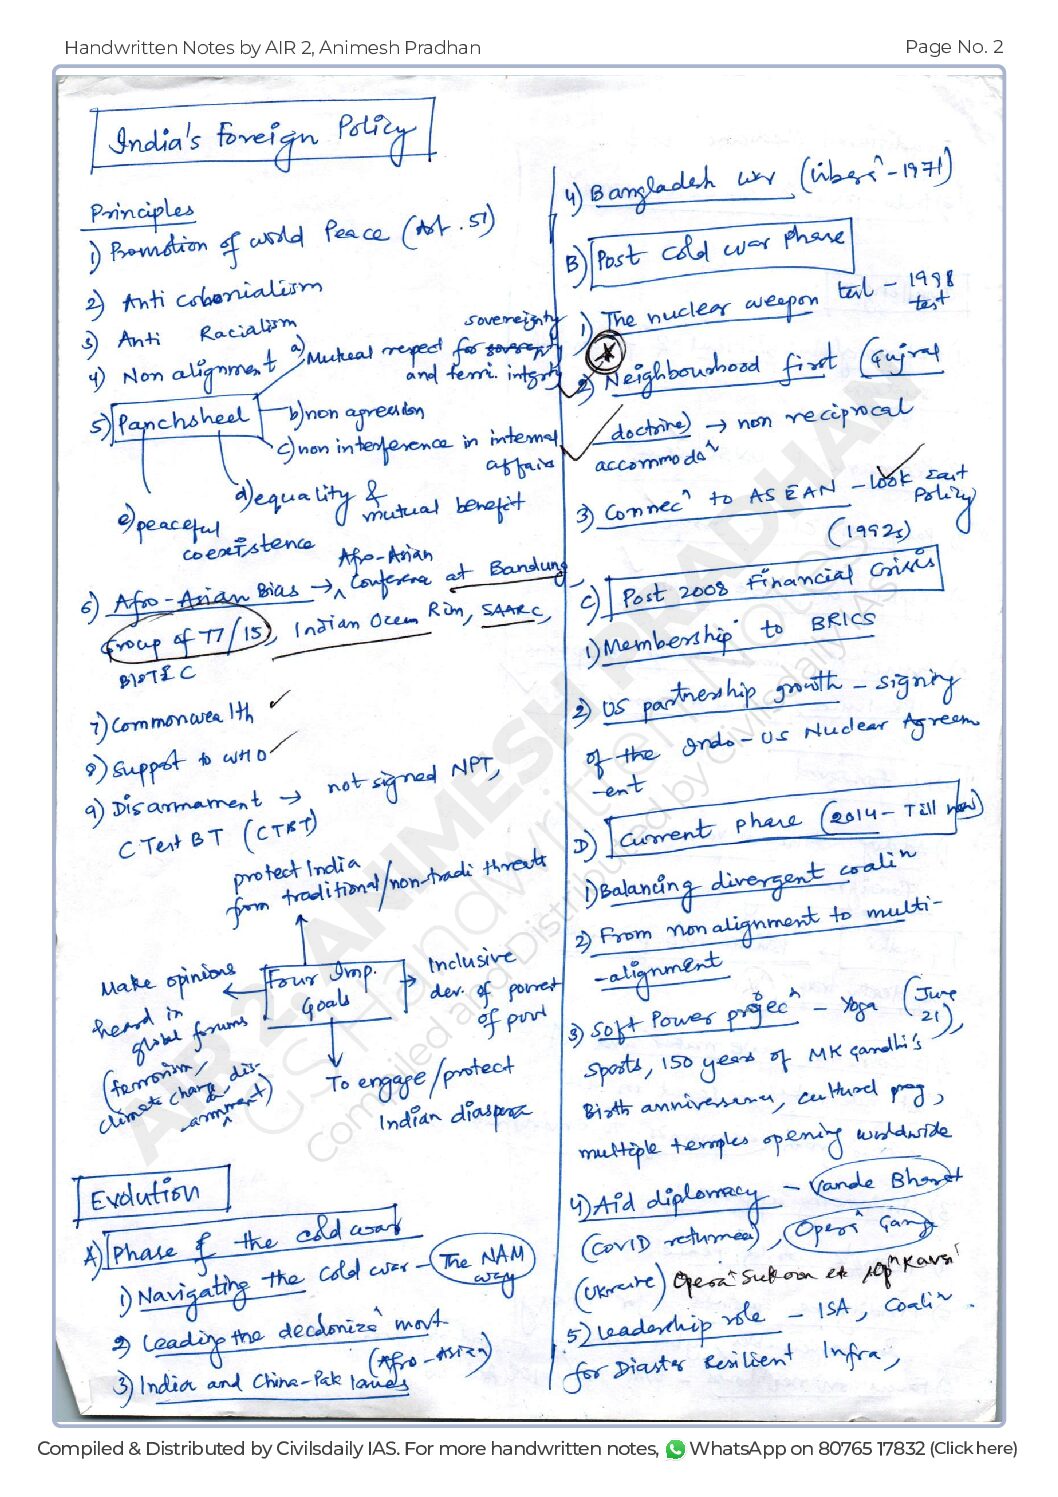 Handwritten Notes by AIR 2, Animesh Pradhan
Page No. 2
India's Foreign Policy
Principles
1) Promotion of world Peace (Art. 51)
2) Anti colonialism
3) Anti Racialism
4) Non alignment
5) Panchsheel
a) Mutual respect for sovereignty
and terri. integrity
b) non agression
c) non interference in internal
affairs
d) equality &
mutual benefit
e) peaceful
coexistence
6) Afro-Asian Bias → Afro-Asian Conference at Bandung,
Group of 77/15, Indian Ocean Rim, SAARC,
BISTEC
7) Commonwealth
8) Support to WHO
9) Disarmament → not signed NPT,
C Test BT (CTBT)
protect India
from traditional/non-tradi threats
Four Imp.
Goals
Make opinions
heard in
global forums
(terrorism,
climate change & dis-
-arnment)
Inclusive
dev. of power
of poor
To engage/protect
Indian diaspora
Evolution
A) Phase of the cold war
1) Navigating the cold war - The NAM
way
2) Leading the decolonizaⁿ movt
(Afro-Asian)
3) India and China-Pak
4) Bangladesh war (Liberⁿ - 1971)
B) Post cold war phase
1) The nuclear weapon test - 1998
test
2) Neighbourhood first (Gujral
doctrine) → non reciprocal
accommodaⁿ
3) Connecⁿ to ASEAN - look East
Policy
(1992s)
C) Post 2008 Financial Crisis
1) Membership to BRICS
2) US partnership growth - signing
of the Indo-US Nuclear Agreem
-ent
D) Current phase (2014 - Till now)
1) Balancing divergent coaliⁿ
2) From nonalignment to multi-
-alignment
3) Soft Power projecⁿ - Yoga (June
21),
Sports, 150 years of MK Gandhi's
Birth anniversary, cultural prog,
multiple temples opening worldwide
4) Aid diplomacy - Vande Bharat
(COVID returnees), Operⁿ Ganga
(Ukraine) Operaⁿ Opⁿ
5) Leadership role - ISA, Coaliⁿ
for Diaster Resilient Infra,
AIR 2 ANIMESH PRADHAN
GS Handwritten Notes
Compiled and Distributed by Civilsdaily IAS
Compiled & Distributed by Civilsdaily IAS. For more handwritten notes, WhatsApp on 80765 17832 (Click here)